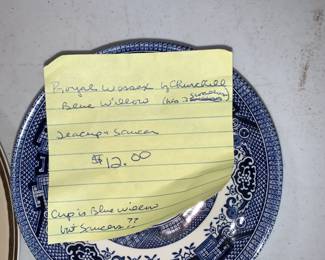 Royal Wessex by Churchill
Blue Willow (has 2 swallows)
Teacup & Saucer
$12.00
Cup is Blue Willow
but Saucer??